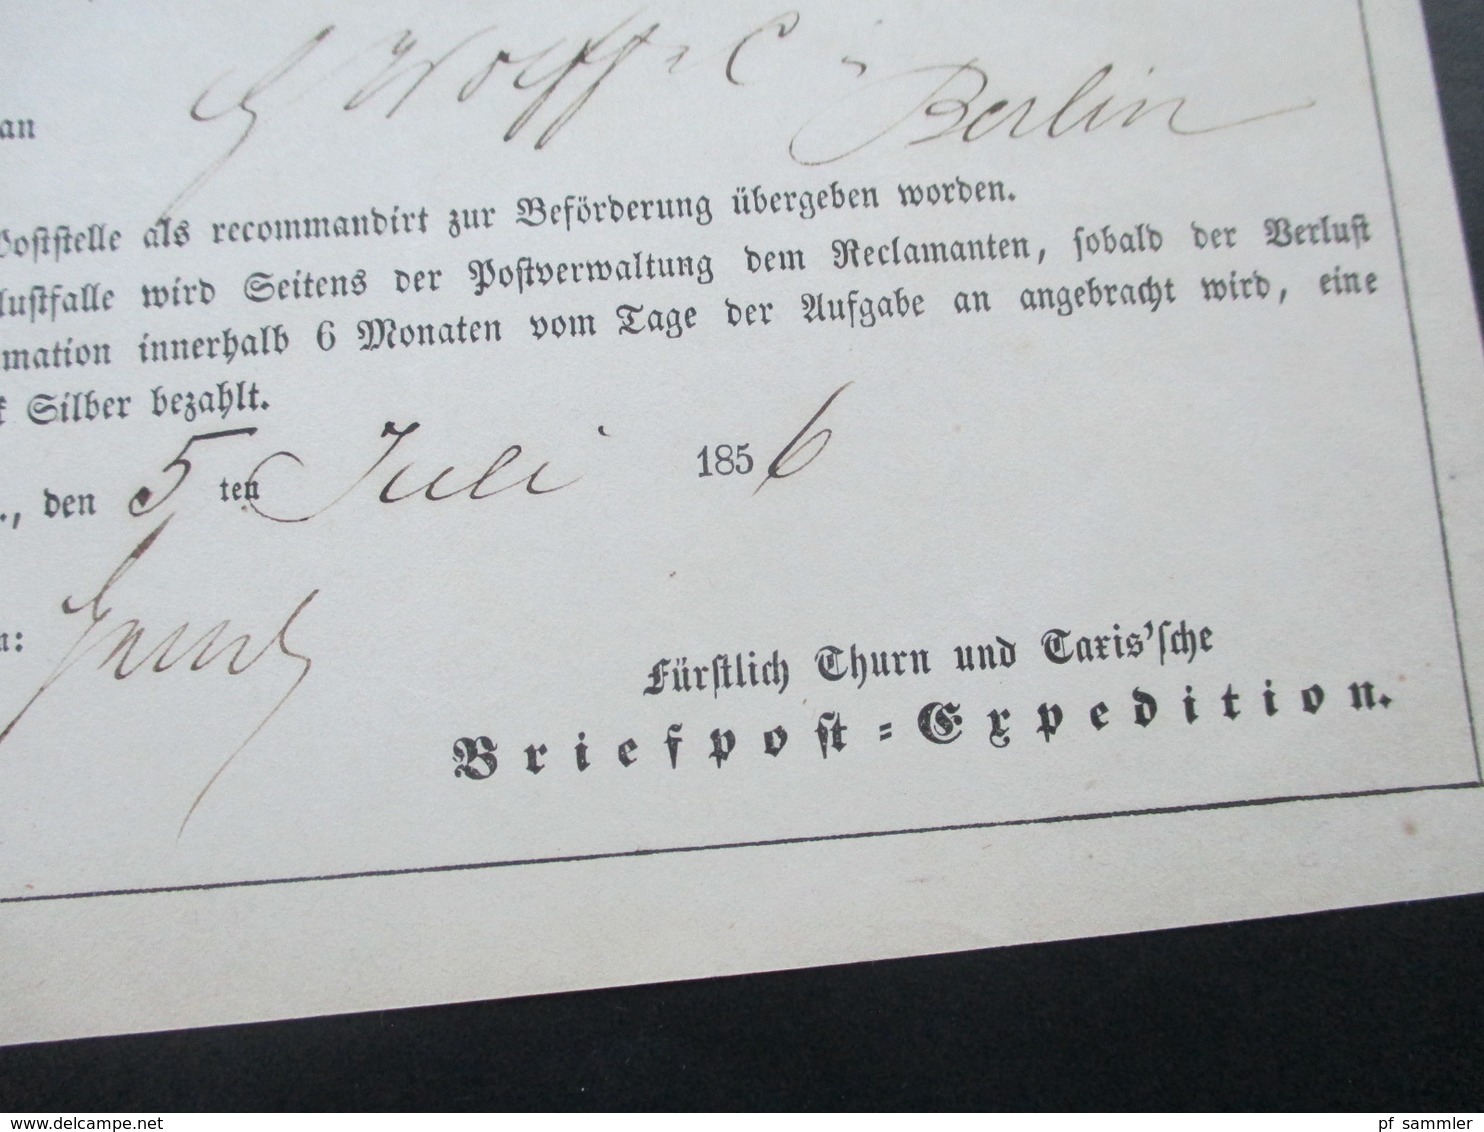 an Wolff & C Berlin
Poststelle als recommandirt zur Beförderung übergeben worden.
lustfalle wird Seitens der Postverwaltung dem Reclamanten, sobald der Verlust
mation innerhalb 6 Monaten vom Tage der Aufgabe an angebracht wird, eine
k Silber bezahlt.
., den 5 ten Juli 1856
n:
Fürstlich Thurn und Taxis'sche
Briefpost-Expedition.
www.delcampe.net
pf_sammler